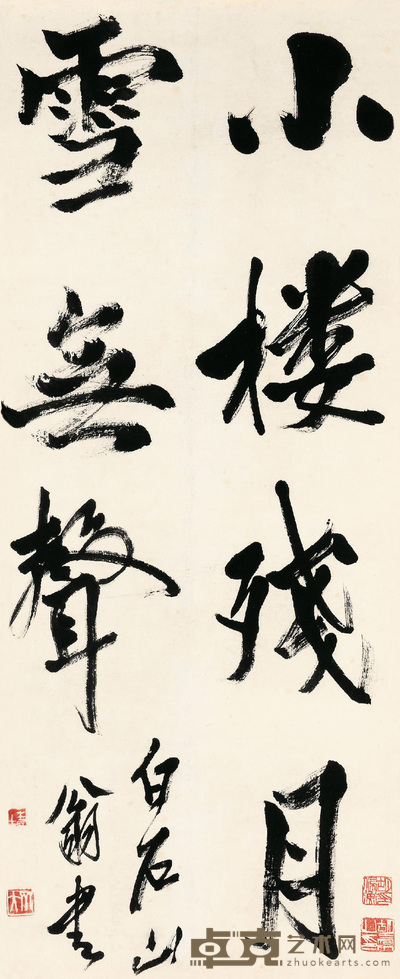 小楼残月
雪無聲
白石山
翁書
卓克艺术网
www.zhuokearts.com